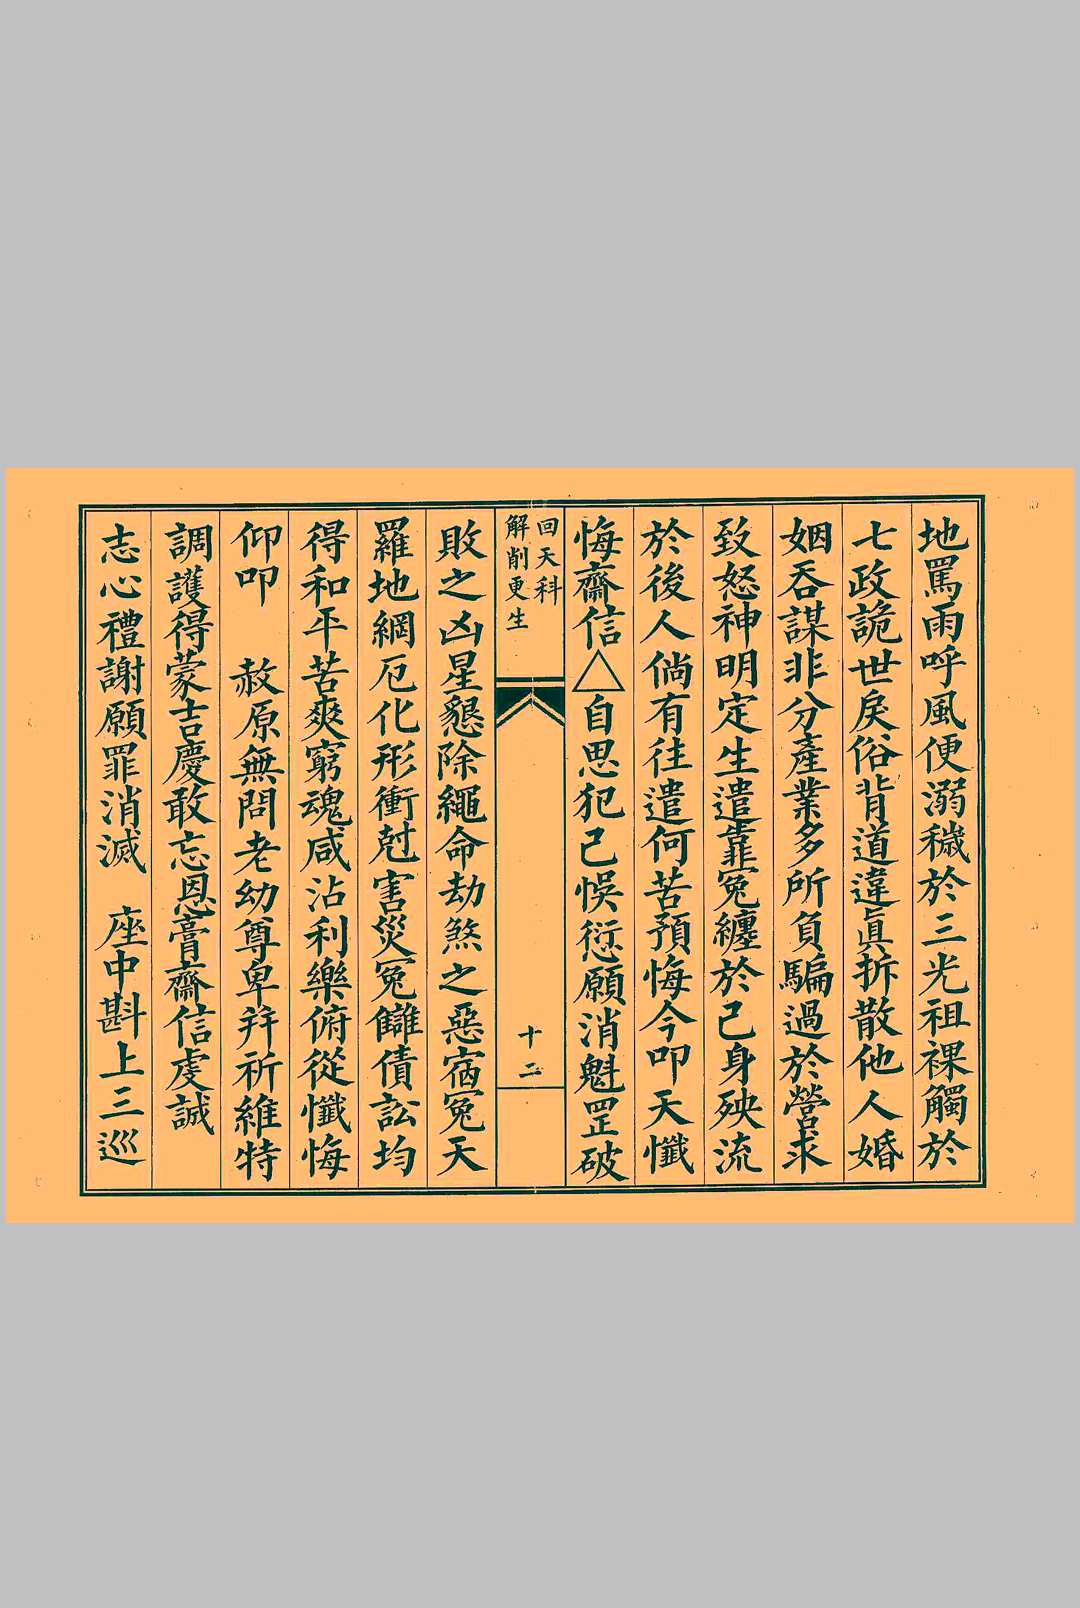 地罵雨呼風便溺穢於三光祖裸觸於
七政詭世戾俗背道違眞拆散他人婚
姻吞謀非分產業多所負騙過於營求
致怒神明定生遣靠冤纏於己身殃流
於後人倘有往遣何苦預悔今叩天懺
悔齋信△自思犯己悞愆願消魁罡破
回天科
解削更生
十二
敗之凶星懇除繩命劫煞之惡宿冤天
羅地網厄化形衝尅害災冤讎債訟均
得和平苦爽窮魂咸沾利樂俯從懺悔
仰叩　赦原無問老幼尊卑并祈維特
調護得蒙吉慶敢忘恩膏齋信虔誠
志心禮謝願罪消滅　座中斟上三巡